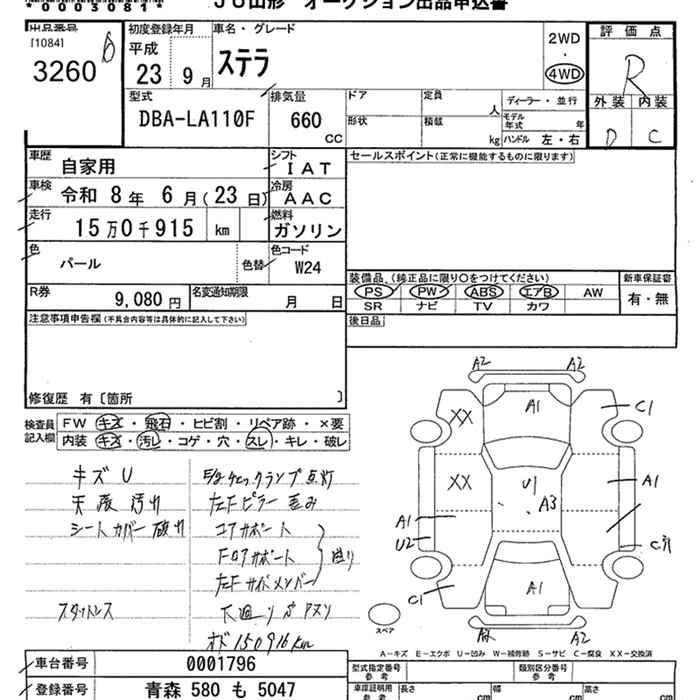 *0005081*
JU山形 オークション出品申込書
出品番号
[1084]
3260
6
初度登録年月
平成
23 9月
車名・グレード
ステラ
2WD
・
4WD
評価点
R
外装 内装
D C
型式
DBA-LA110F
排気量
660
CC
ドア
定員
人
形状
積載
kg
ディーラー・並行
モデル年式 年
ハンドル 左・右
車歴
自家用
シフト
IAT
車検
令和 8年 6月(23日)
冷房
AAC
走行
15万0千915 km
燃料
ガソリン
色
パール
色替
色コード
W24
R券
9,080円
名変通知期限
月 日
セールスポイント(正常に機能するものに限ります)
装備品(純正品に限り○をつけてください)
PS PW ABS エアB AW
SR ナビ TV カワ
新車保証書
有・無
後日品
注意事項申告欄(不具合内容等は具体的に記入して下さい)
修復歴 有〔箇所 〕
検査員記入欄
FW キズ・飛石・ヒビ割・リペア跡・×要
内装 キズ・汚レ・コゲ・穴・スレ・キレ・破レ
キズ U
天張汚れ
シートカバー破れ
スタットレス
E/gチェックランプ点灯
左Fピラー歪み
コアサポート
Fロアサポート
左Fサイドメンバー
下廻りサビ
オド150916km
A2 A2
A1
XX
C1
XX
U1
A3
A1
A1
U2
C1
A1
C1
A2
A2
スペア
A-キズ E-エクボ U-凹み W-補修跡 S-サビ C-腐食 XX-交換済
車台番号
0001796
登録番号
青森 580 も 5047
型式指定番号
参考
類別区分番号
参考
車庫証明用
参考
長さ cm
幅 cm
高さ cm